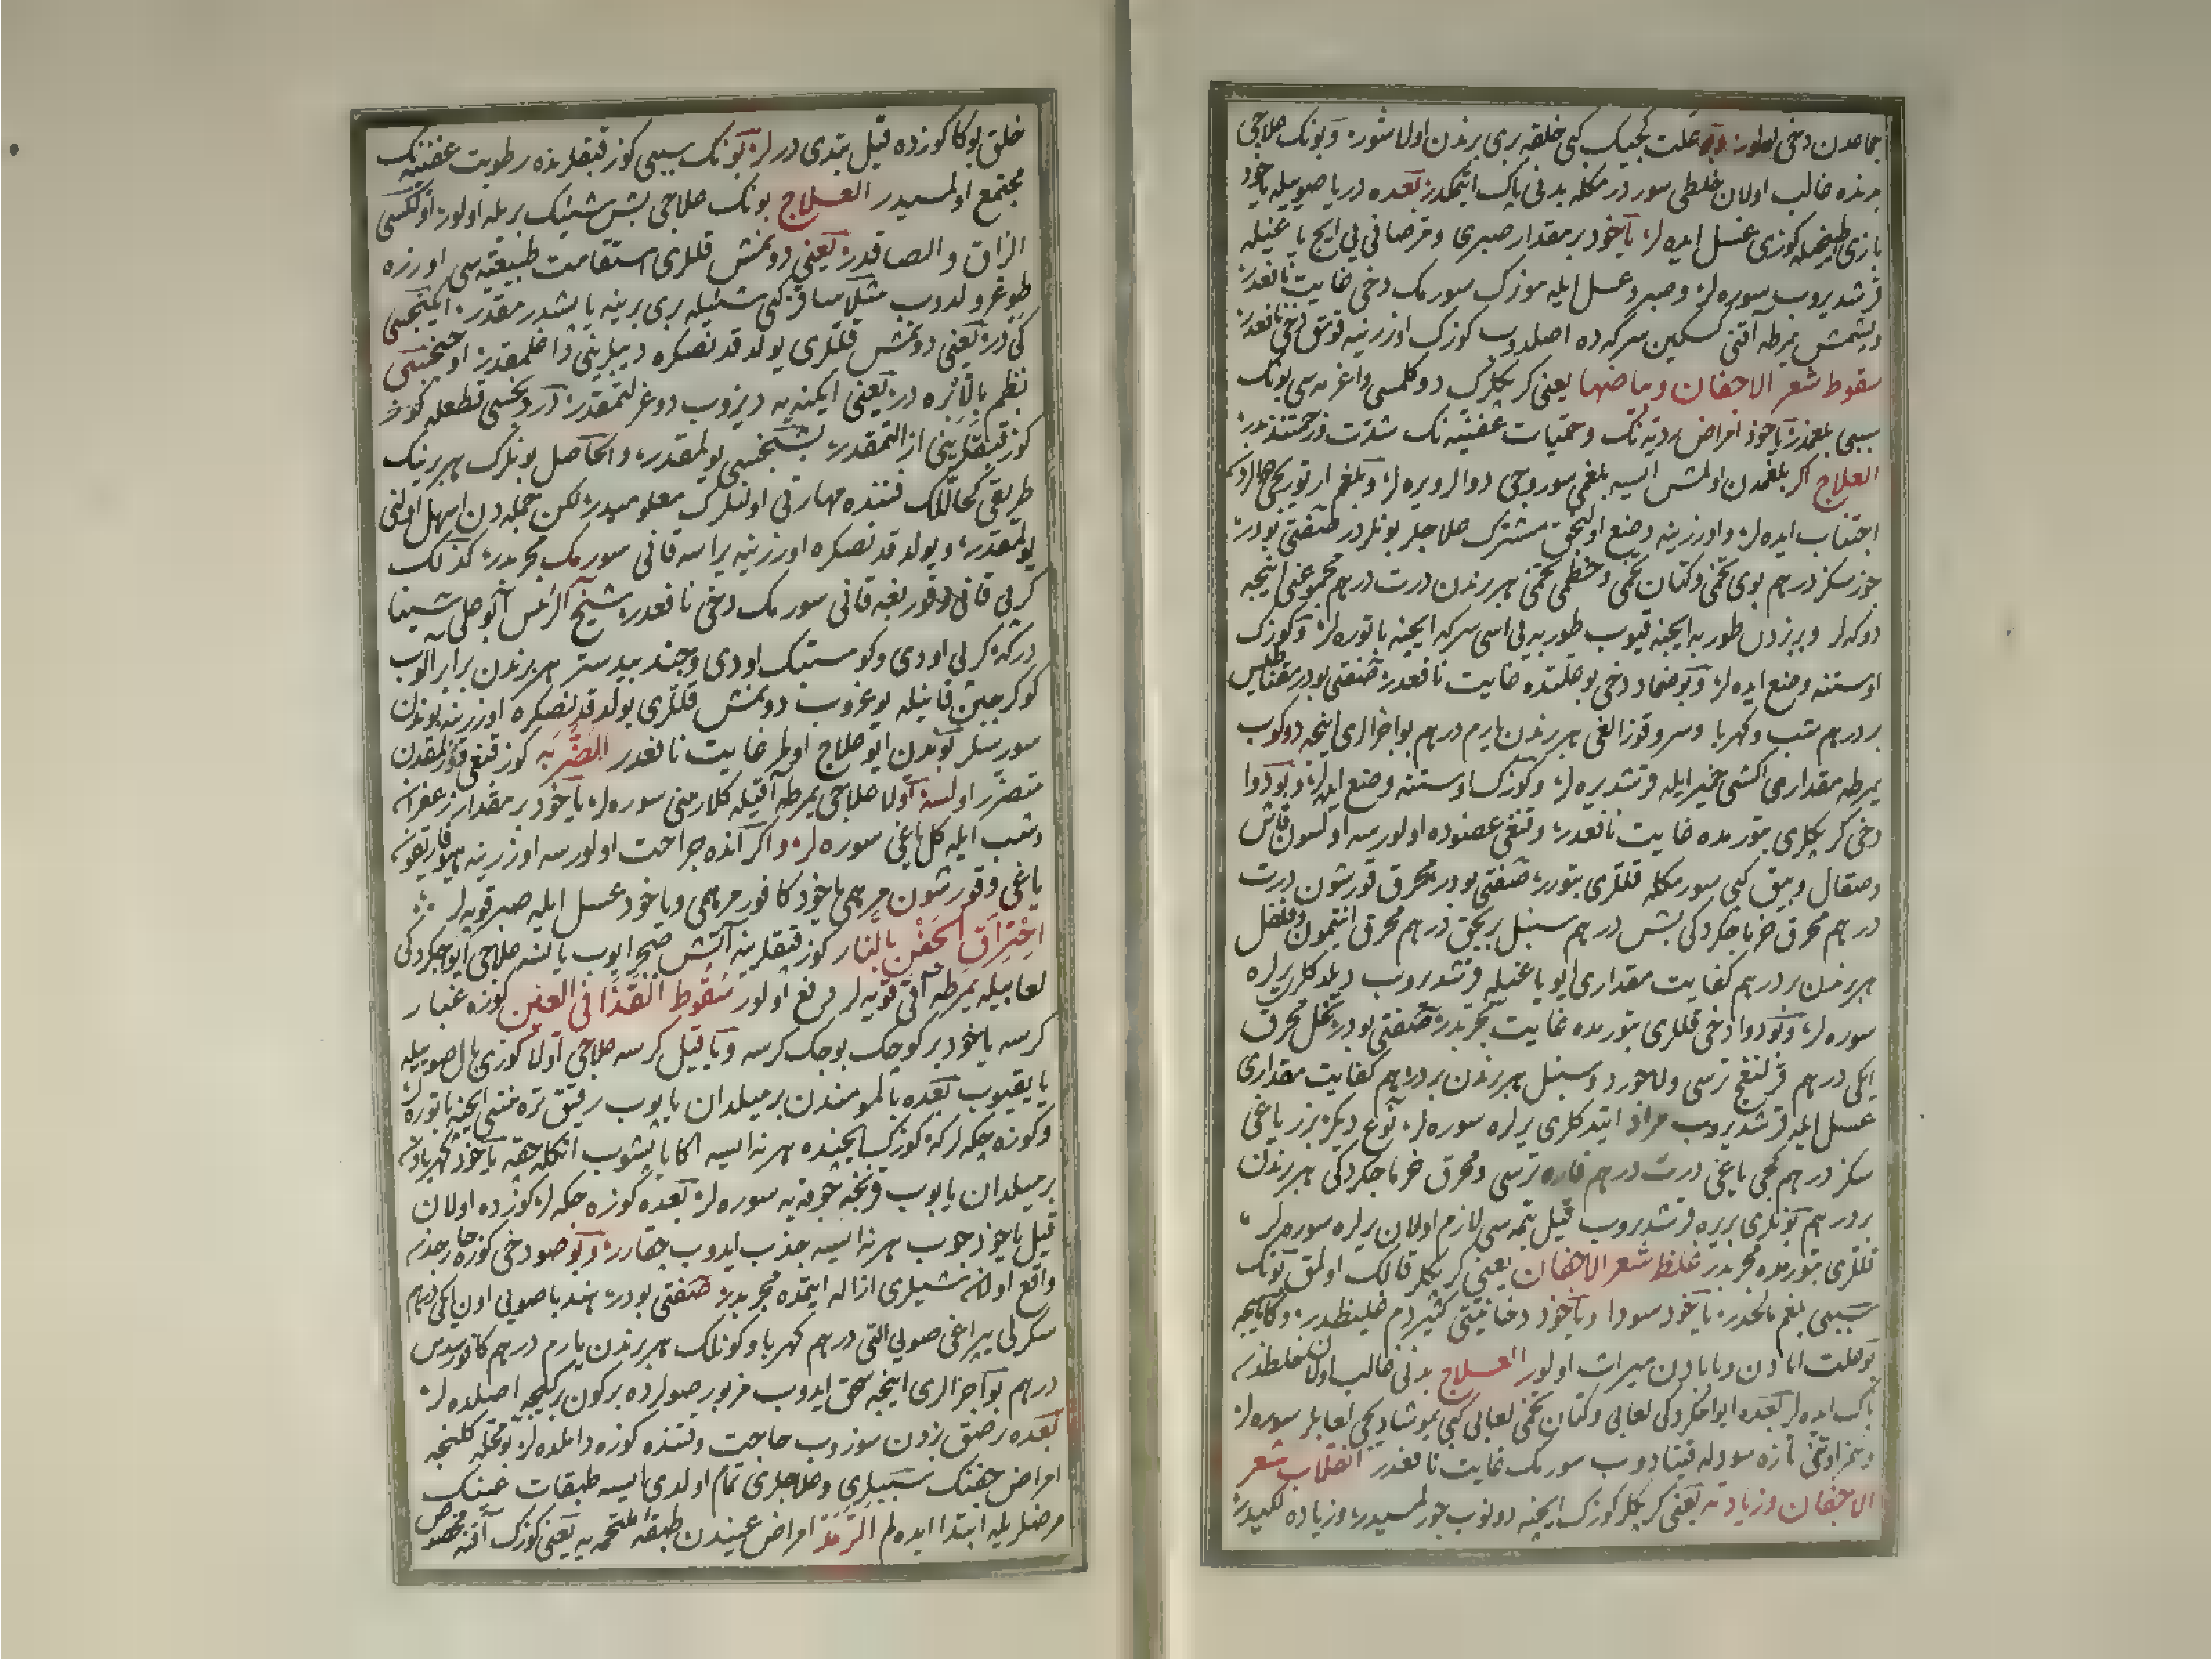 جماعدن دخی اولور علت كجیك كبی خلقه بری برندن اولاشور و بونك علاجی
بدنده غالب اولان خلطی سورر مكله بدنی پاك ایتمكدر بعده دریا صوییله یاخود
كوزی غسل ایده لر یاخود بر مقدار صبری و قرصافی بی ایچ یاغیله
قرشدیروب سوره لر و صبر و عسل ایله موزك سورمك دخی غایت نافعدر
یمرطه آقنی كسكین سركه ده اصلدوب كوزك اوزرینه قومق دخی نافعدر
سقوط شعر الاجفان و بیاضها یعنی كربكلرك دوكلمسی و اغرمه سی بونك
سببی بلغمدر یاخود امراض ردیه نك و حمیات عفنیه نك شدت
العلاج اكر بلغمدن اولمش ایسه بلغمی سوروجی دوالر ویره لر و بلغم ارتوریجی
اجتناب ایده لر و اوزرینه وضع اولنجق مشترك علاجلر بونلردر صنعتی بودر
جوز سكز درهم بوی تخمی و كتان تخمی و خطمی تخمی هر برندن درت درهم مجموعنی اینجه
دوكه لر و بزدن طوربه ایچنه قیوب طوربه یی اسی سركه ایچنه باتوره لر و كوزك
اوستنه وضع ایده لر و بو ضماد دخی بو علتده غایت نافعدر صنعتی بودر مقناطیس
بر درهم شب و كهربا و سرو قوزالغی هر برندن یارم درهم بو اجزالری اینجه دوكوب
یمرطه مقداری اكشی خمیر ایله قرشدیره لر و كوزك اوستنه وضع ایده لر و بو دوا
دخی كربكلری بتورمده غایت نافعدر و قنغی عضوده اولورسه اولسون قاش
و صقال و بیق كبی سورمكله قللری بتورر صنعتی بودر محرق قورشون درت
درهم محرق خرما چكردكی بش درهم سنبل بر بچق درهم محرق انتیمون و فلفل
هر برندن بر درهم كفایت مقداری ایو یاغیله قرشدیروب دیلدكلری یرلره
سوره لر و بو دوا دخی قللری بتورمده غایت مجربدر صنعتی بودر كحل محرق
ایكی درهم قرلنغج ترسی و لاجورد و سنبل هر برندن بر درهم كفایت مقداری
عسل ایله قرشدیروب مراد ایتدكلری یرلره سوره لر نوع دیكر بزر یاغی
سكز درهم كچی یاغی درت درهم فاره ترسی و محرق خرما چكردكی هر برندن
بر درهم بونلری بریره قرشدیروب قیل بتمه سی لازم اولان یرلره سوره لر
قللری بتورمده مجربدر غلظ شعر الاجفان یعنی كربكلر قالك اولمق بونك
سببی بلغم مالحدر یاخود سودا و یاخود دخانیتی كثیر دم غلیظدر و كاهیجه
بو علت انادن و بابادن میراث اولور العلاج بدنی غالب اولان خلطدن
پاك ایده لر بعده ایوا چكردكی لعابی و كتان تخمی لعابی كبی یومشادیجی لعابلر سوره لر
تازه سودله قینادوب سورمك غایت نافعدر انقلاب شعر
الاجفان و زیادته یعنی كربكلر كوزك ایچنه دونوب چورلمسیدر و زیاده لكیدر
خلق بوكا كوزده قیل بتدی درلر بونك سببی كوز قبقلرنده رطوبت عفنیه نك
مجتمع اولمسیدر العلاج بونك علاجی بش شیئك بریله اولور اولكیسی
الزاق و الصاقدر یعنی دونمش قللری استقامت طبیعیه سی اوزره
طوغرولدوب مثلا ساقز كبی شیئیله بری برینه یاپشدرمقدر ایكنجیسی
كی در یعنی دونمش قللری یولدقدنصكره دیبلرینی داغلمقدر اوچنجیسی
نظم بالابره در یعنی ایكنه یه دیزوب دوغرلتمقدر دردنجیسی قطعله
كوز قبقلرینی ازالتمقدر بشنجیسی یولمقدر و الحاصل بونلرك هر برینك
طریقی كحاللك فننده مهارتی اولنلرك معلومیدر لكن جمله دن اسهل اولنی
یولمقدر و یولدقدنصكره اوزرینه یراسه قانی سورمك مجربدر كذلك
كرپی قانی و قوربغه قانی سورمك دخی نافعدر شیخ الرئیس ابو علی سینا
دركه كرپی اودی و كوستبك اودی و جندبیدستر هر برندن برابر الوب
كوكرجین قانیله یوغروب دونمش قللری یولدقدنصكره اوزرینه بوندن
سورسلر بوندن ایو علاج اولمز غایت نافعدر الضربه كوز قبغی قورلمقدن
متضرر اولسه اولا علاجی یمرطه آقیله كلارمنی سوره لر یاخود بر مقدار زعفران
و شب ایله كل یاغی سوره لر و اكر آنده جراحت اولورسه اوزرینه هیوفاریقون
یاغی و قورشون مرهمی یاخود كافور مرهمی و یاخود عسل ایله صبر قویه لر
احتراق الجفن بالنار كوز قبقلرینه آتش صچرایوب یانسه علاجی ایوا چكردكی
لعابیله یمرطه آقی قویه لر دفع اولور سقوط القذا فی العین كوزه غبار
كرسه یاخود بر كوچك بوجك كرسه و یا قیل كرسه علاجی اولا كوزی بال صوییله
یایقیوب بعده بالمومندن بر میلدان یاپوب رقیق ترمنتی ایچنه باتوره لر
و كوزه چكه لر كه كوزك ایچنده هر نه ایسه اكا یاپشوب انكله چقه یاخود كهربادن
بر میلدان یاپوب قرنجه چوقه یه سوره لر بعده كوزه چكه لر كوزده اولان
قیل یاخود چوب هر نه ایسه جذب ایدوب چقارر و بو صو دخی كوزه
واقع اولان شیلری ازاله ایتمده مجربدر صنعتی بودر هندبا صویی اون ایكی درهم
سكرلی یپراغی صویی التی درهم كهربا و كونلك هر برندن یارم درهم كافور سدس
درهم بو اجزالری اینجه سحق ایدوب مزبور صولرده بر كون بر كیجه اصلده لر
بعده رصق بزدن سوزوب حاجت وقتنده كوزه داملده لر بو محله كلنجه
امراض جفنك سببلری و علاجلری تمام اولدی ایسه طبقات عینك
مرضلریله ابتدا ایده لم الرمد امراض عیندن طبقه ملتحمه یه یعنی كوزك آقنه مخصوص